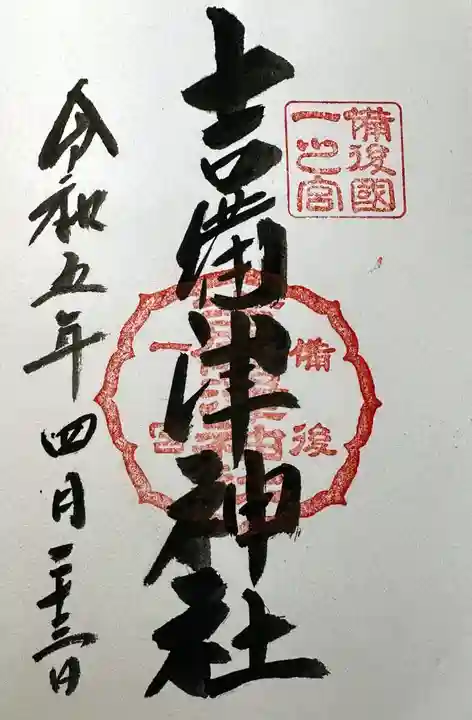 備後國
一之宮
吉備津神社
備後
一
宮
令和五年四月二十三日